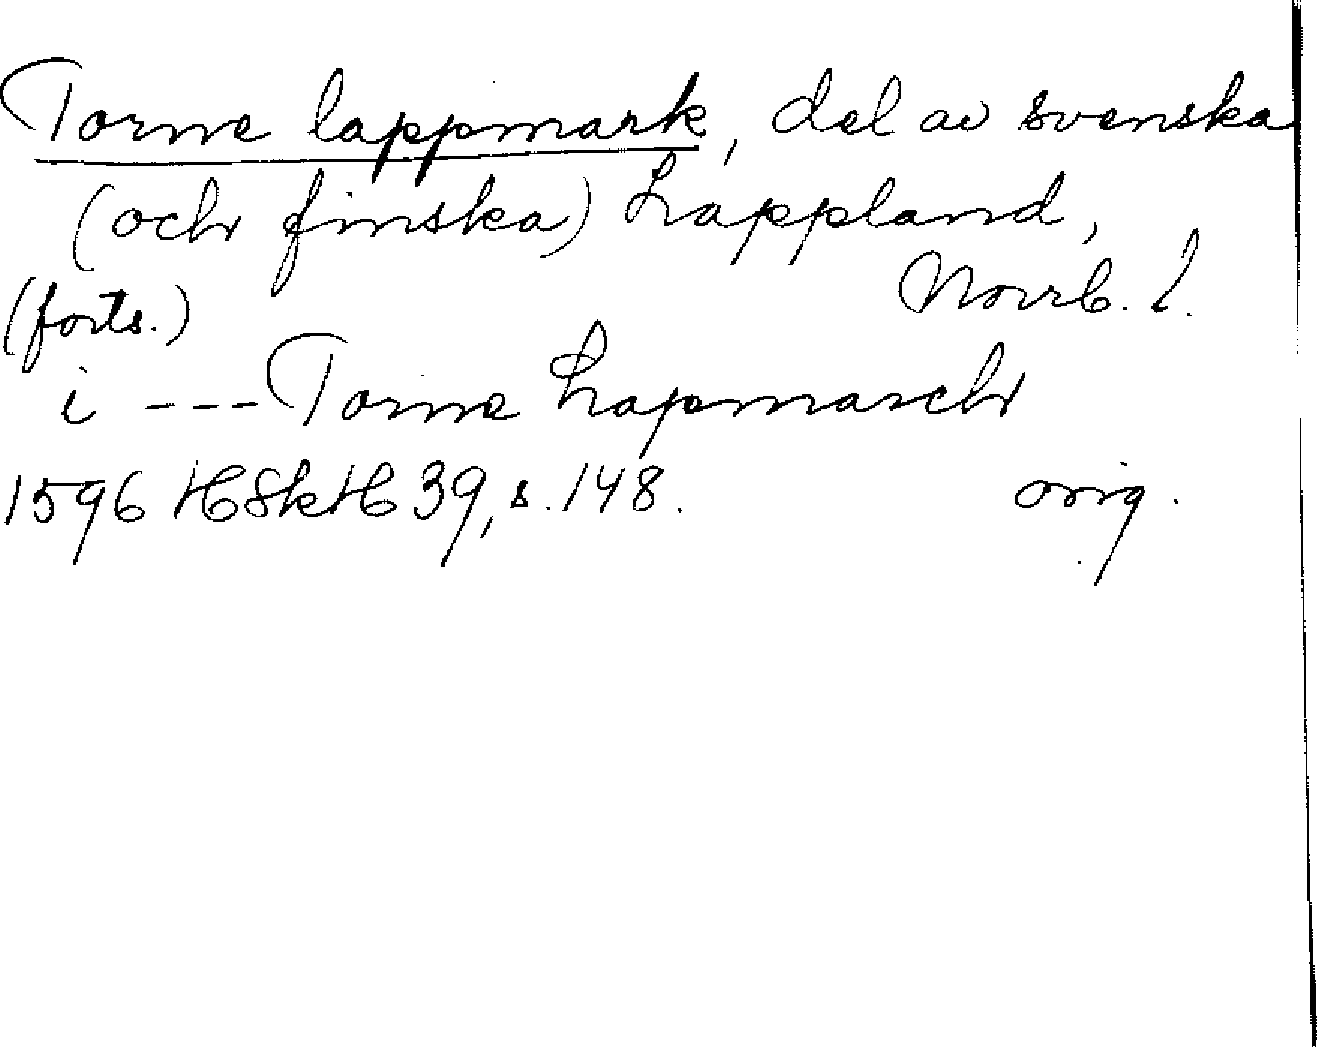 Torne lappmark, del av svenska
(och finska) Lappland,
Norrb. l.
(forts.)
i --- Torne Lapmarch
1596 HSkH 39, s. 148. orig.